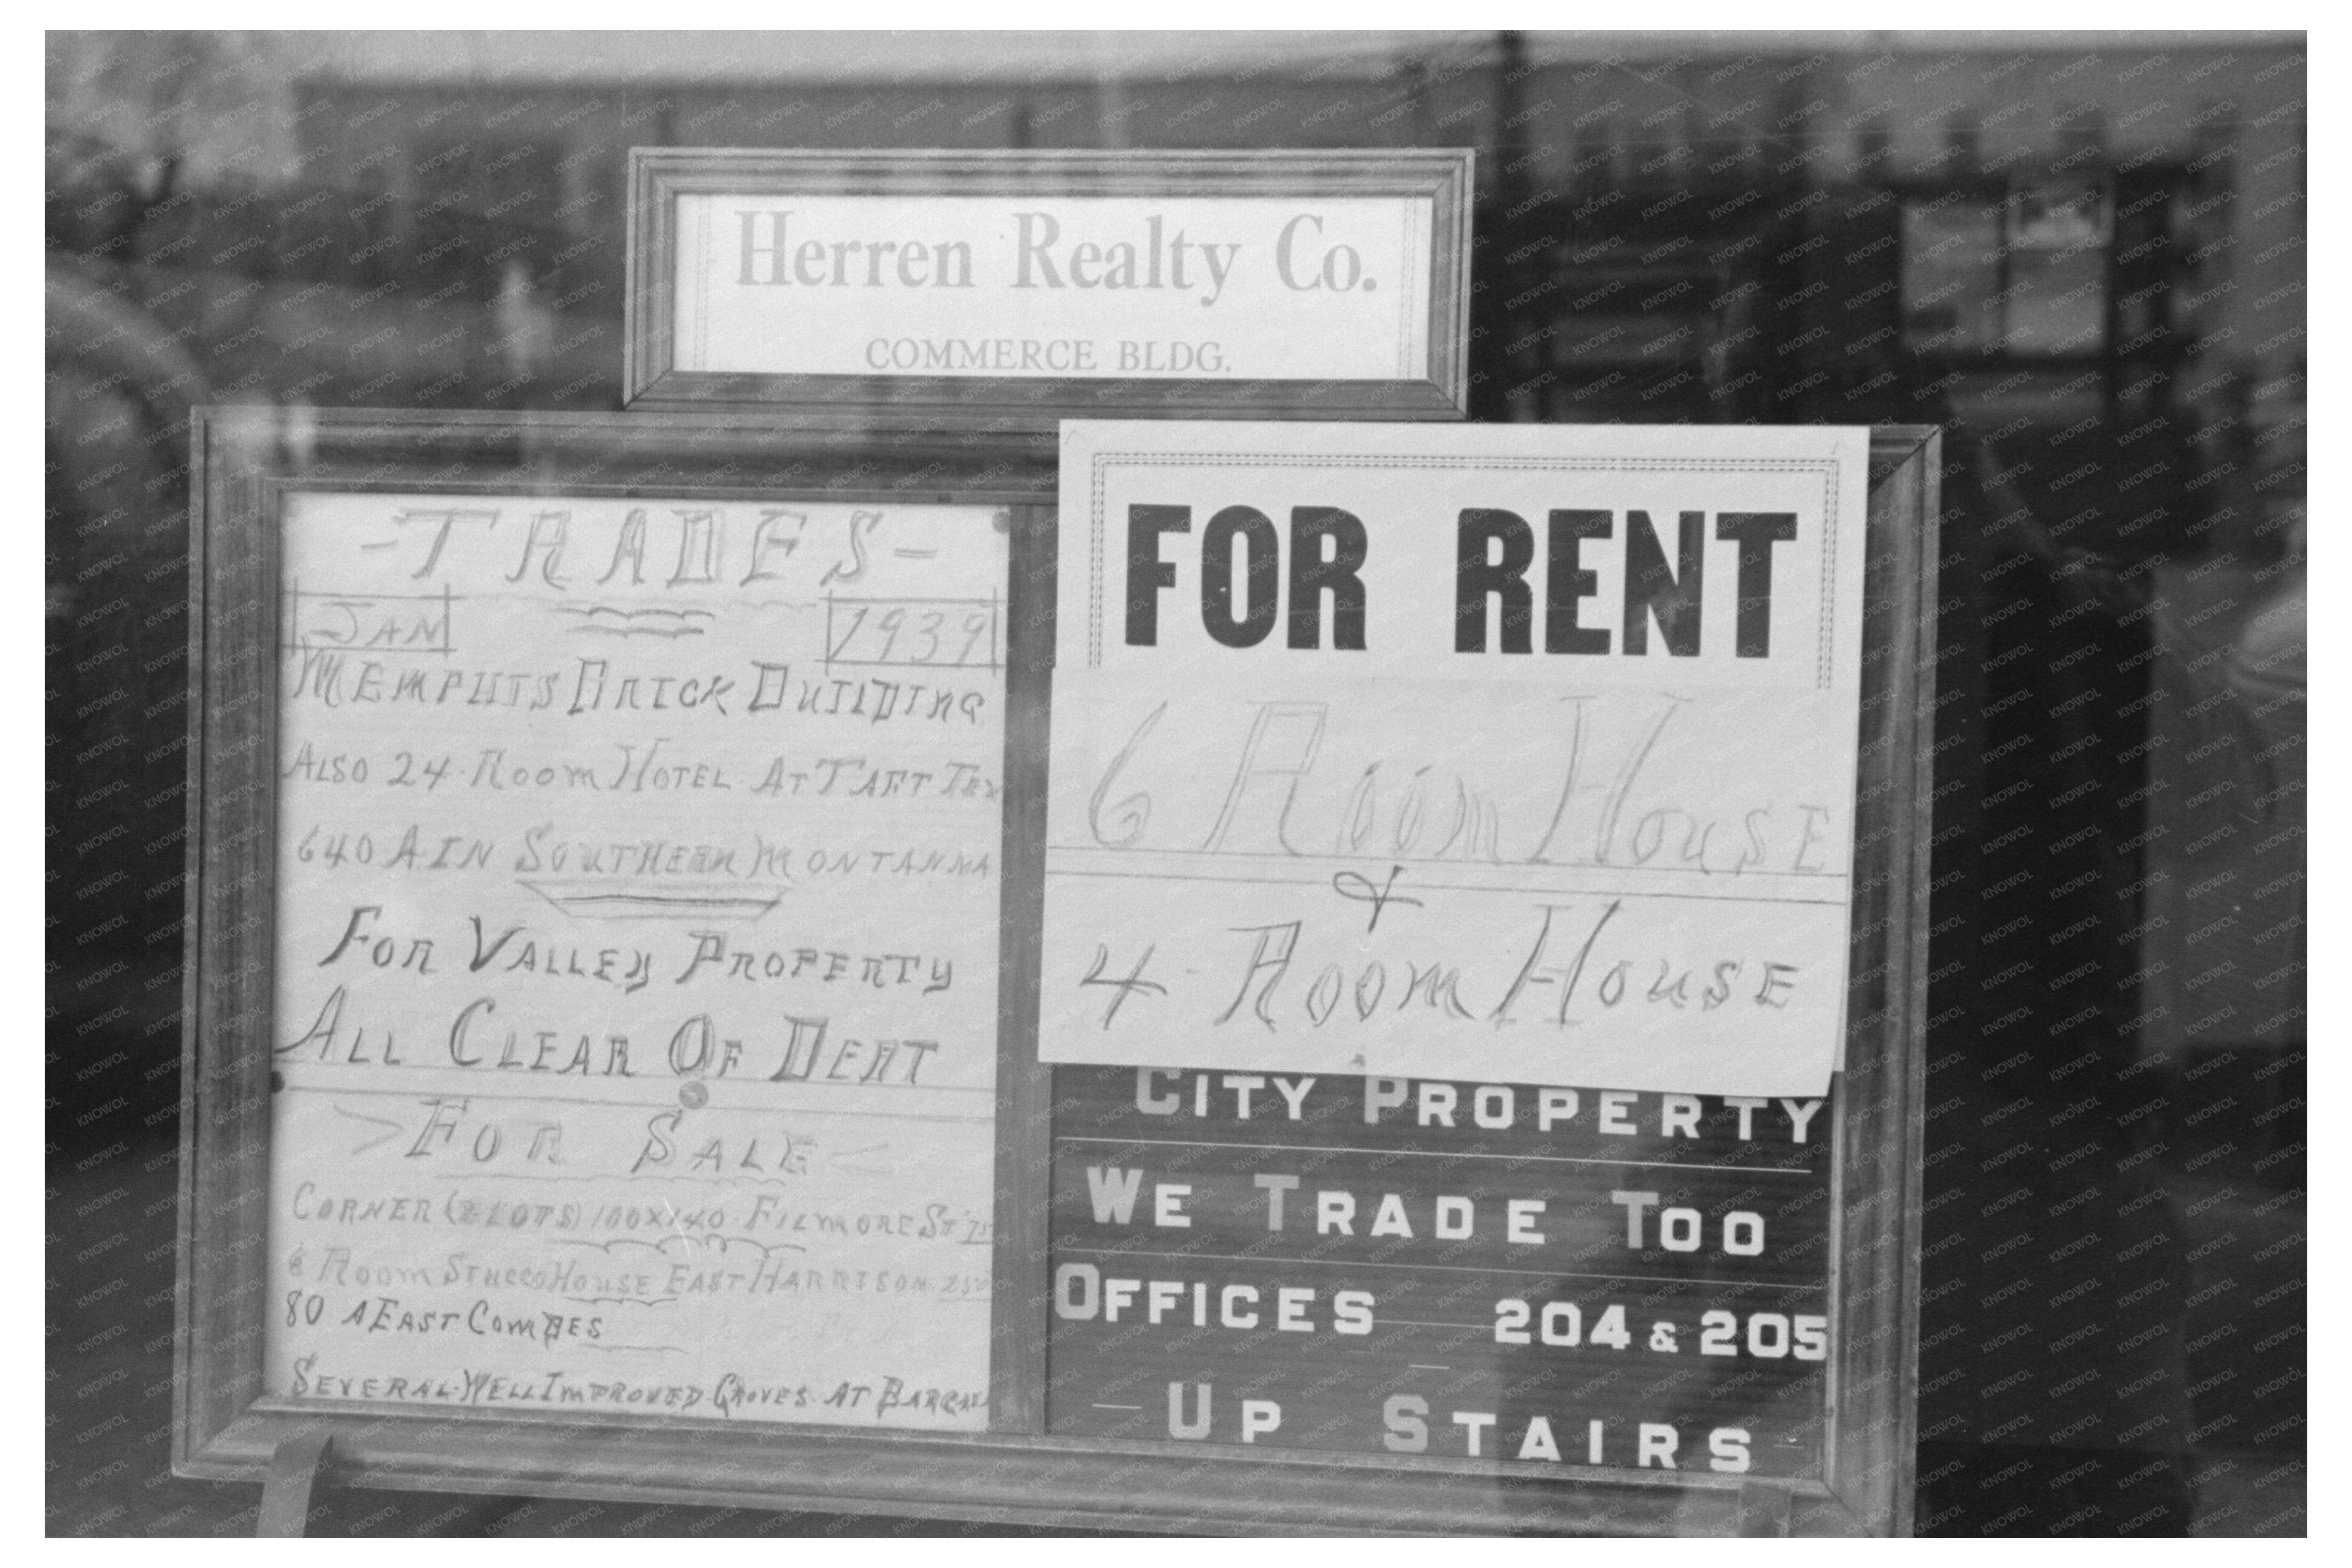 Herren Realty Co.
COMMERCE BLDG.
-TRADES-
JAN 1939
MEMPHIS BRICK BUILDING
ALSO 24-ROOM HOTEL AT TAFT TEX
640 A IN SOUTHERN MONTANNA
FOR VALLEY PROPERTY
ALL CLEAR OF DEBT
>FOR SALE<
CORNER (2 LOTS) 100X140 FILMORE ST
6 ROOM STUCCO HOUSE EAST HARRISON
80 A EAST COMBES
SEVERAL WELL IMPROVED GROVES AT
FOR RENT
6 ROOM HOUSE
&
4-ROOM HOUSE
CITY PROPERTY
WE TRADE TOO
OFFICES 204 & 205
- UP STAIRS -
KNOWOL